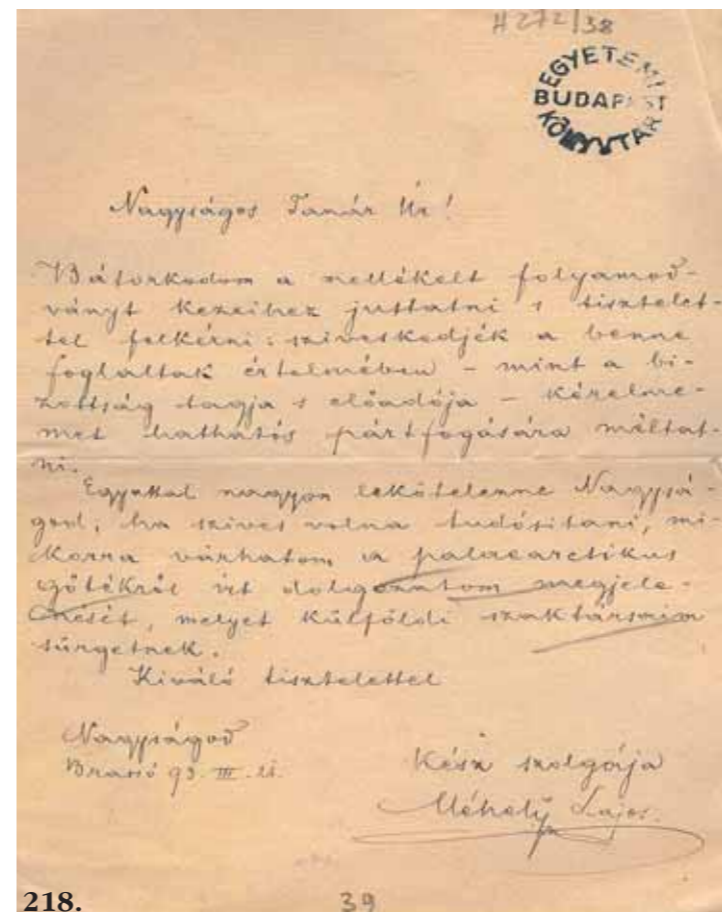 H272/38
EGYETEMI
BUDAPEST
KÖNYVTÁR
Nagyságos Tanár Úr!
Bátorkodom a mellékelt folyamod-
ványt kezeihez juttatni s tisztelet-
tel felkérni: sziveskedjék a benne
foglaltak értelmében – mint a bi-
zottság tagja s előadója – kérelme-
met hathatós pártfogására méltat-
ni.
Egyuttal nagyon lekötelezne Nagysá-
god, ha szives volna tudósitani, mi-
korra várhatom a palaearctikus
gőtékről irt dolgozatom megjele-
nését, melyet külföldi szaktársaim
sürgetnek.
Kiváló tisztelettel
Nagyságod
Brassó 93. III.
kész szolgája
Méhely Lajos.
218.
39